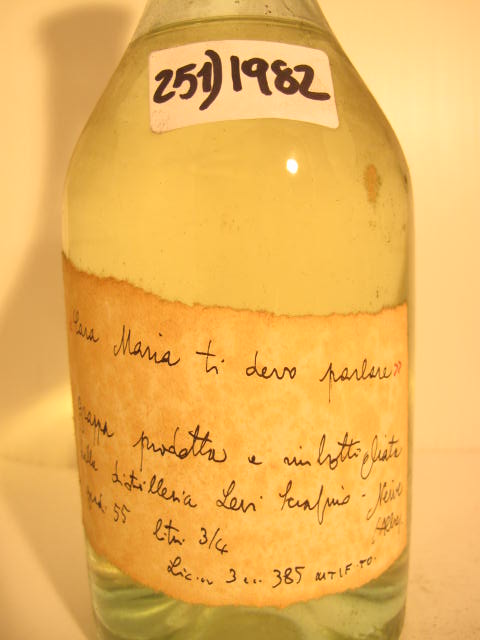 251) 1982
Cara Maria ti devo parlare»
Grappa prodotta e imbottigliata
dalla distilleria Levi Serafino - Neive
gradi 55 litri 3/4 (Alba)
Lic. n 3 385 MTIF.TO.